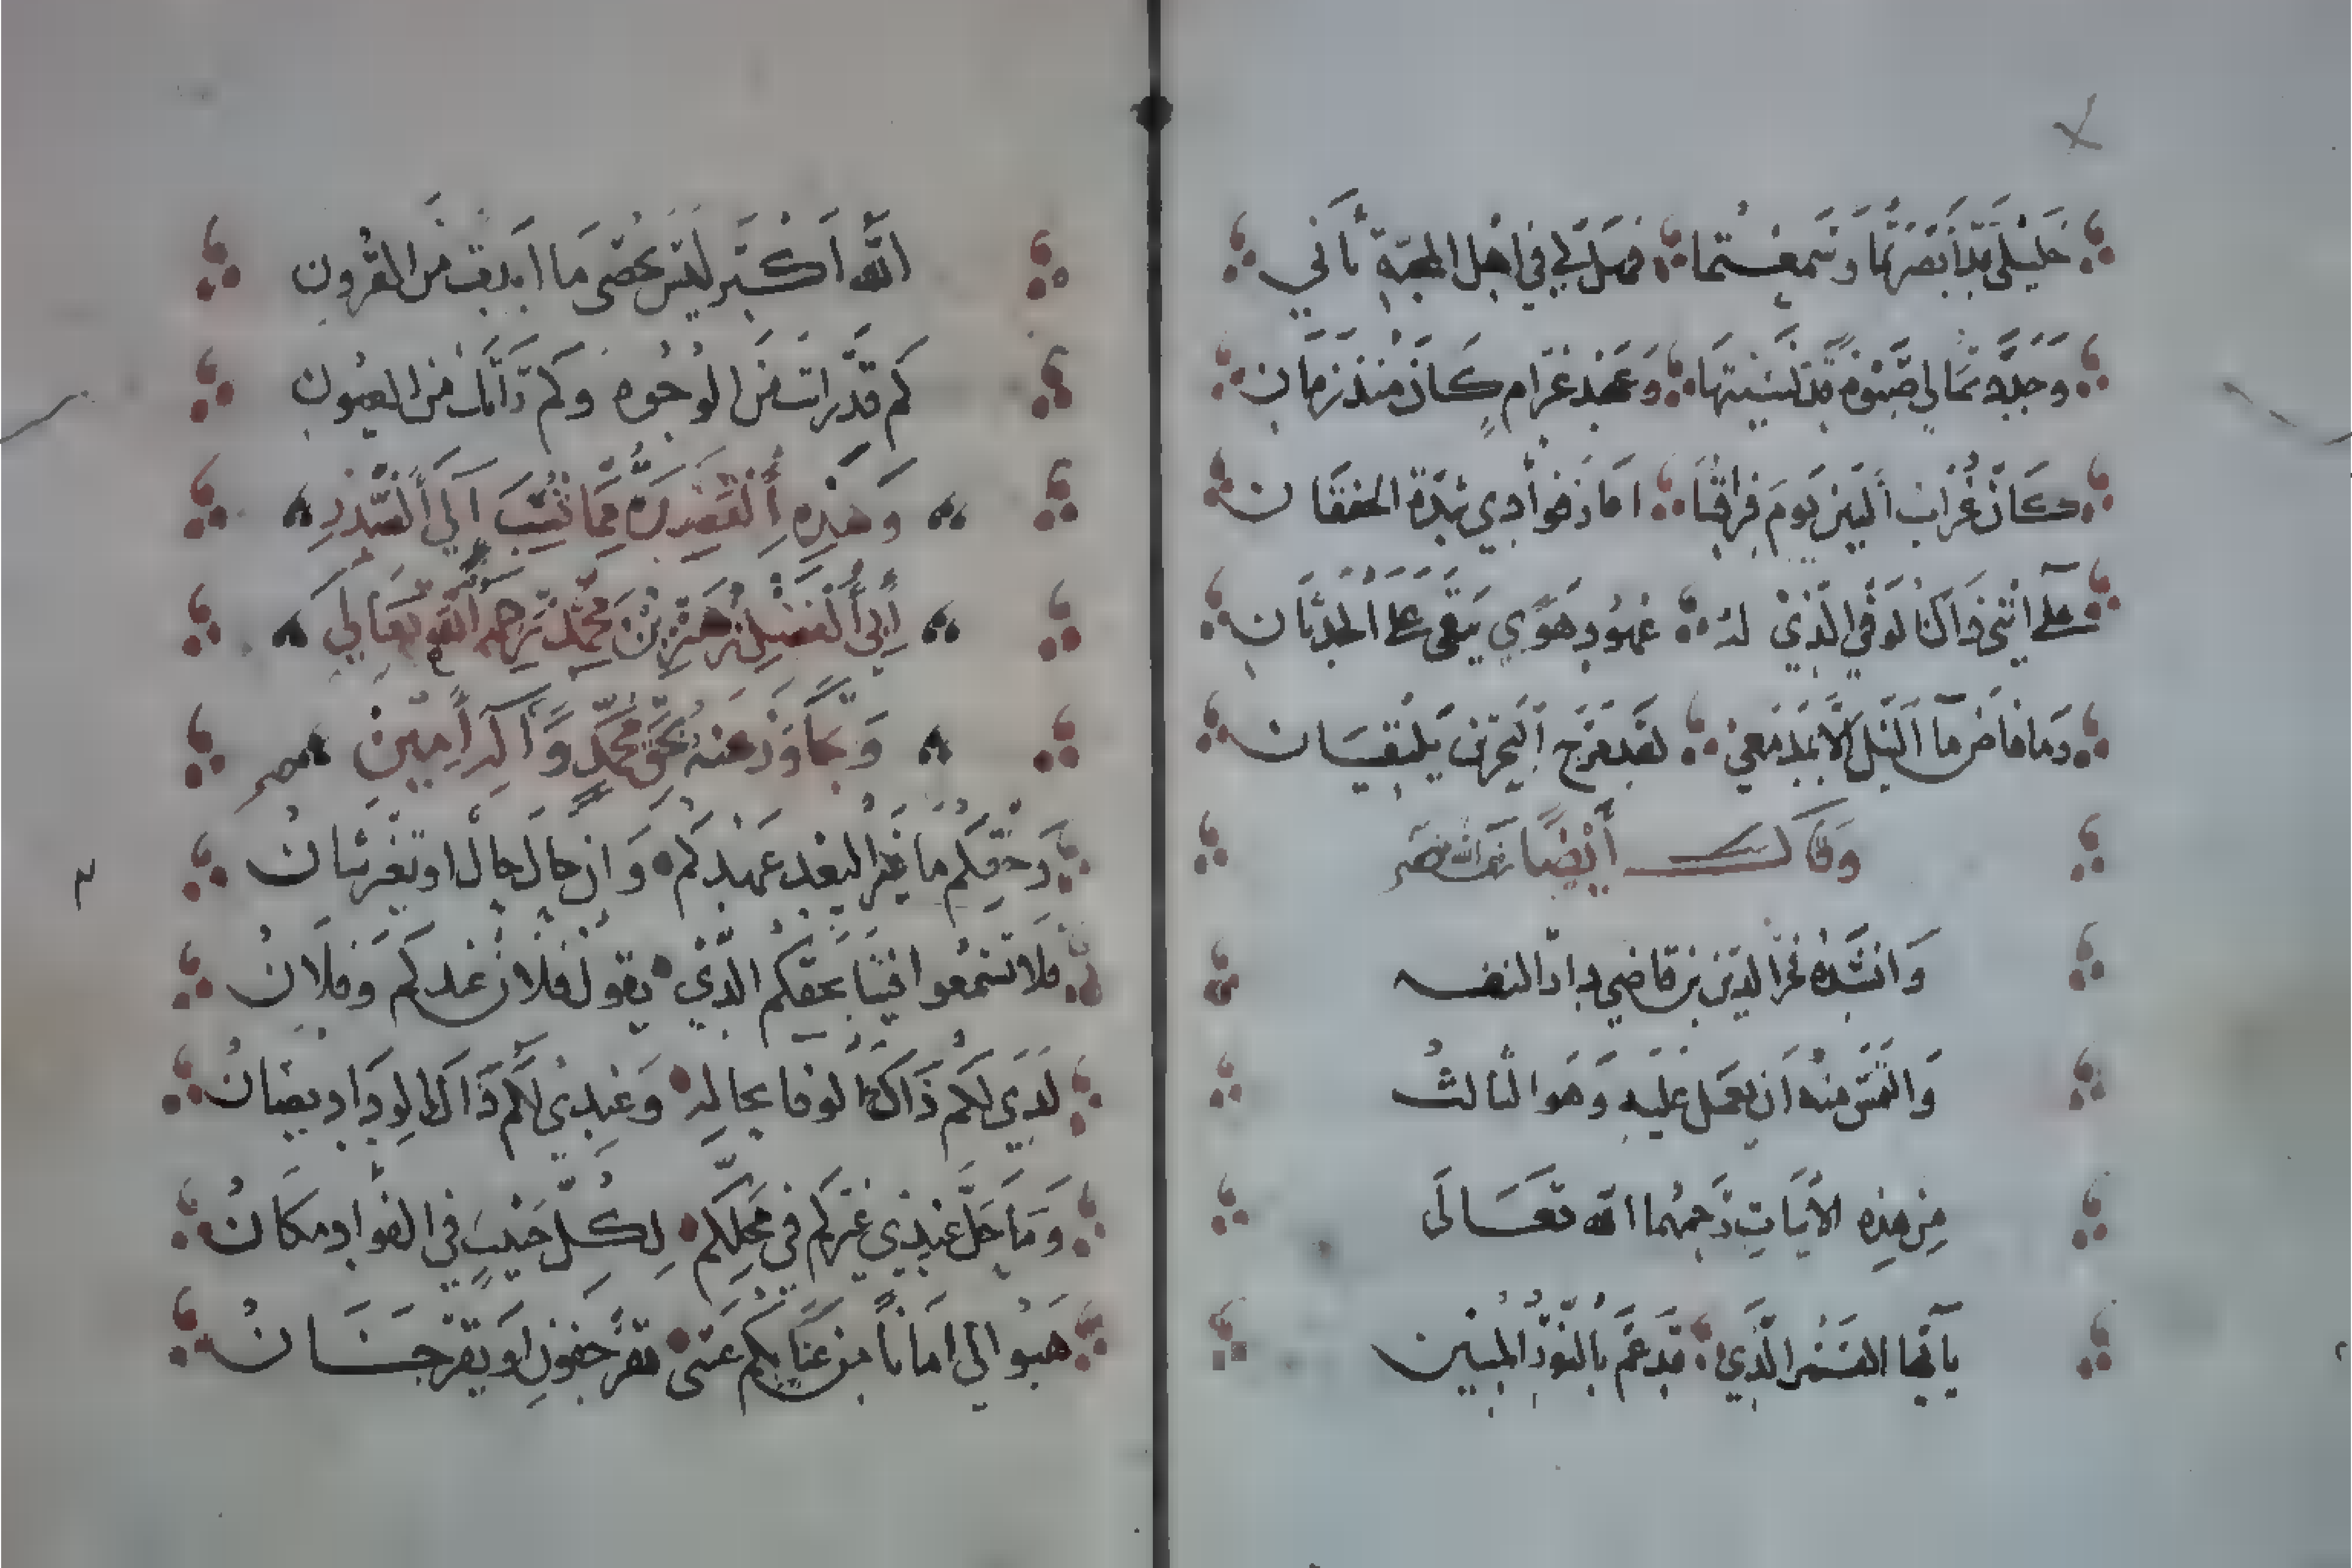 خليلي قد أبصرتما وسمعتما فهل لي في أهل المحبة ثاني
وجددتما لي صبوة قد نسيتها وعهد غرام كان منذ زمان
كأن غراب البين يوم فراقنا أعار فؤادي شدة الخفقان
على أنني ذاك الوفي الذي له عهود هوى يبقى على الحدثان
وما فاض ماء النيل إلا بمدمعي لقد مزج البحرين يلتقيان
وقال أيضا
وانشده فخر الدين بن قاضي دارا النفسه
والتمس منه ان يعمل عليه وهو الثالث
من هذه الأبيات رحمهما الله تعالى
يا أيها القمر الذي قد عم بالنور المبين
الله أكبر ليس يحصى ما من القرون
كم قد رات من الوجوه وكم من العيون
وهذه القصيدة مما نسب الى الصدر
أبي الفضل زهير بن محمد رحمه الله تعالى
وتجاوز عنه بحق محمد وآله آمين
وحقكم ما غير البعد عهدكم وان حال حال او تغير شان
فلا تسمعوا فينا بحقكم الذي يقول فلان عندكم وفلان
لدي لكم ذاك الوفا بحاله وعندي لكم ذاك الوداد يصان
وما حل عندي غيركم في محلكم لكل حبيب في الفؤاد مكان
هبوا لي أمانا من عتابكم عسى تقر جفون او يقر جنان